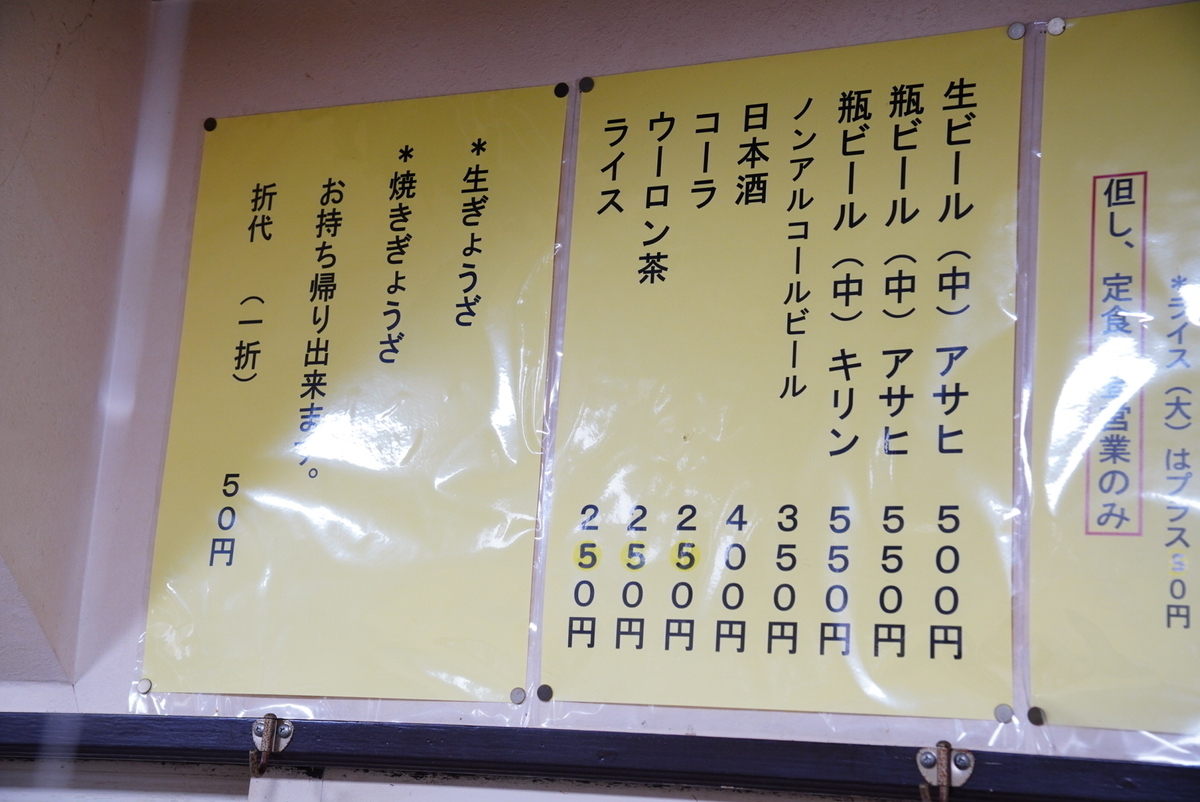 *ライス（大）はプラス
但し、定食 営業のみ
生ビール（中）アサヒ ５００円
瓶ビール（中）アサヒ ５５０円
瓶ビール（中）キリン ５５０円
ノンアルコールビール ３５０円
日本酒 ４００円
コーラ ２５０円
ウーロン茶 ２５０円
ライス ２５０円
*生ぎょうざ
*焼きぎょうざ
お持ち帰り出来ます。
折代 （一折） ５０円